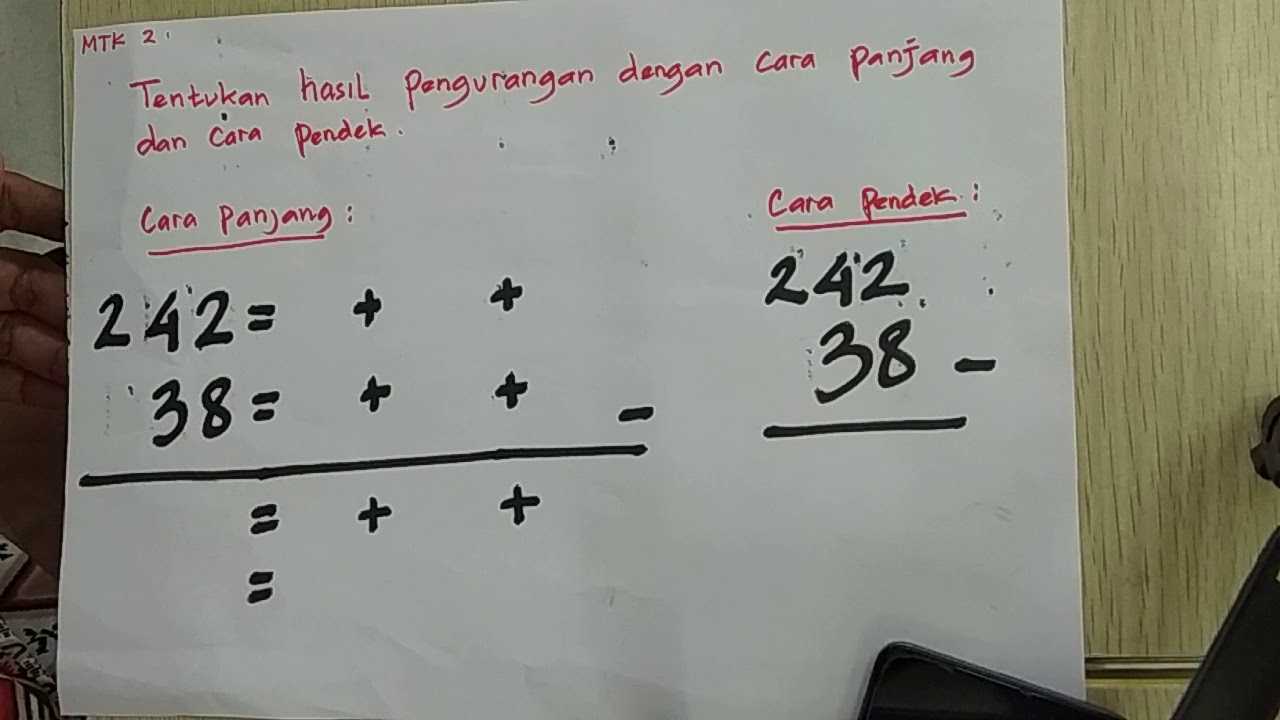 MTK 2
Tentukan hasil pengurangan dengan cara panjang
dan cara pendek.
Cara Panjang :
242 = + +
38 = + + -
= + +
=
Cara Pendek :
242
38 -